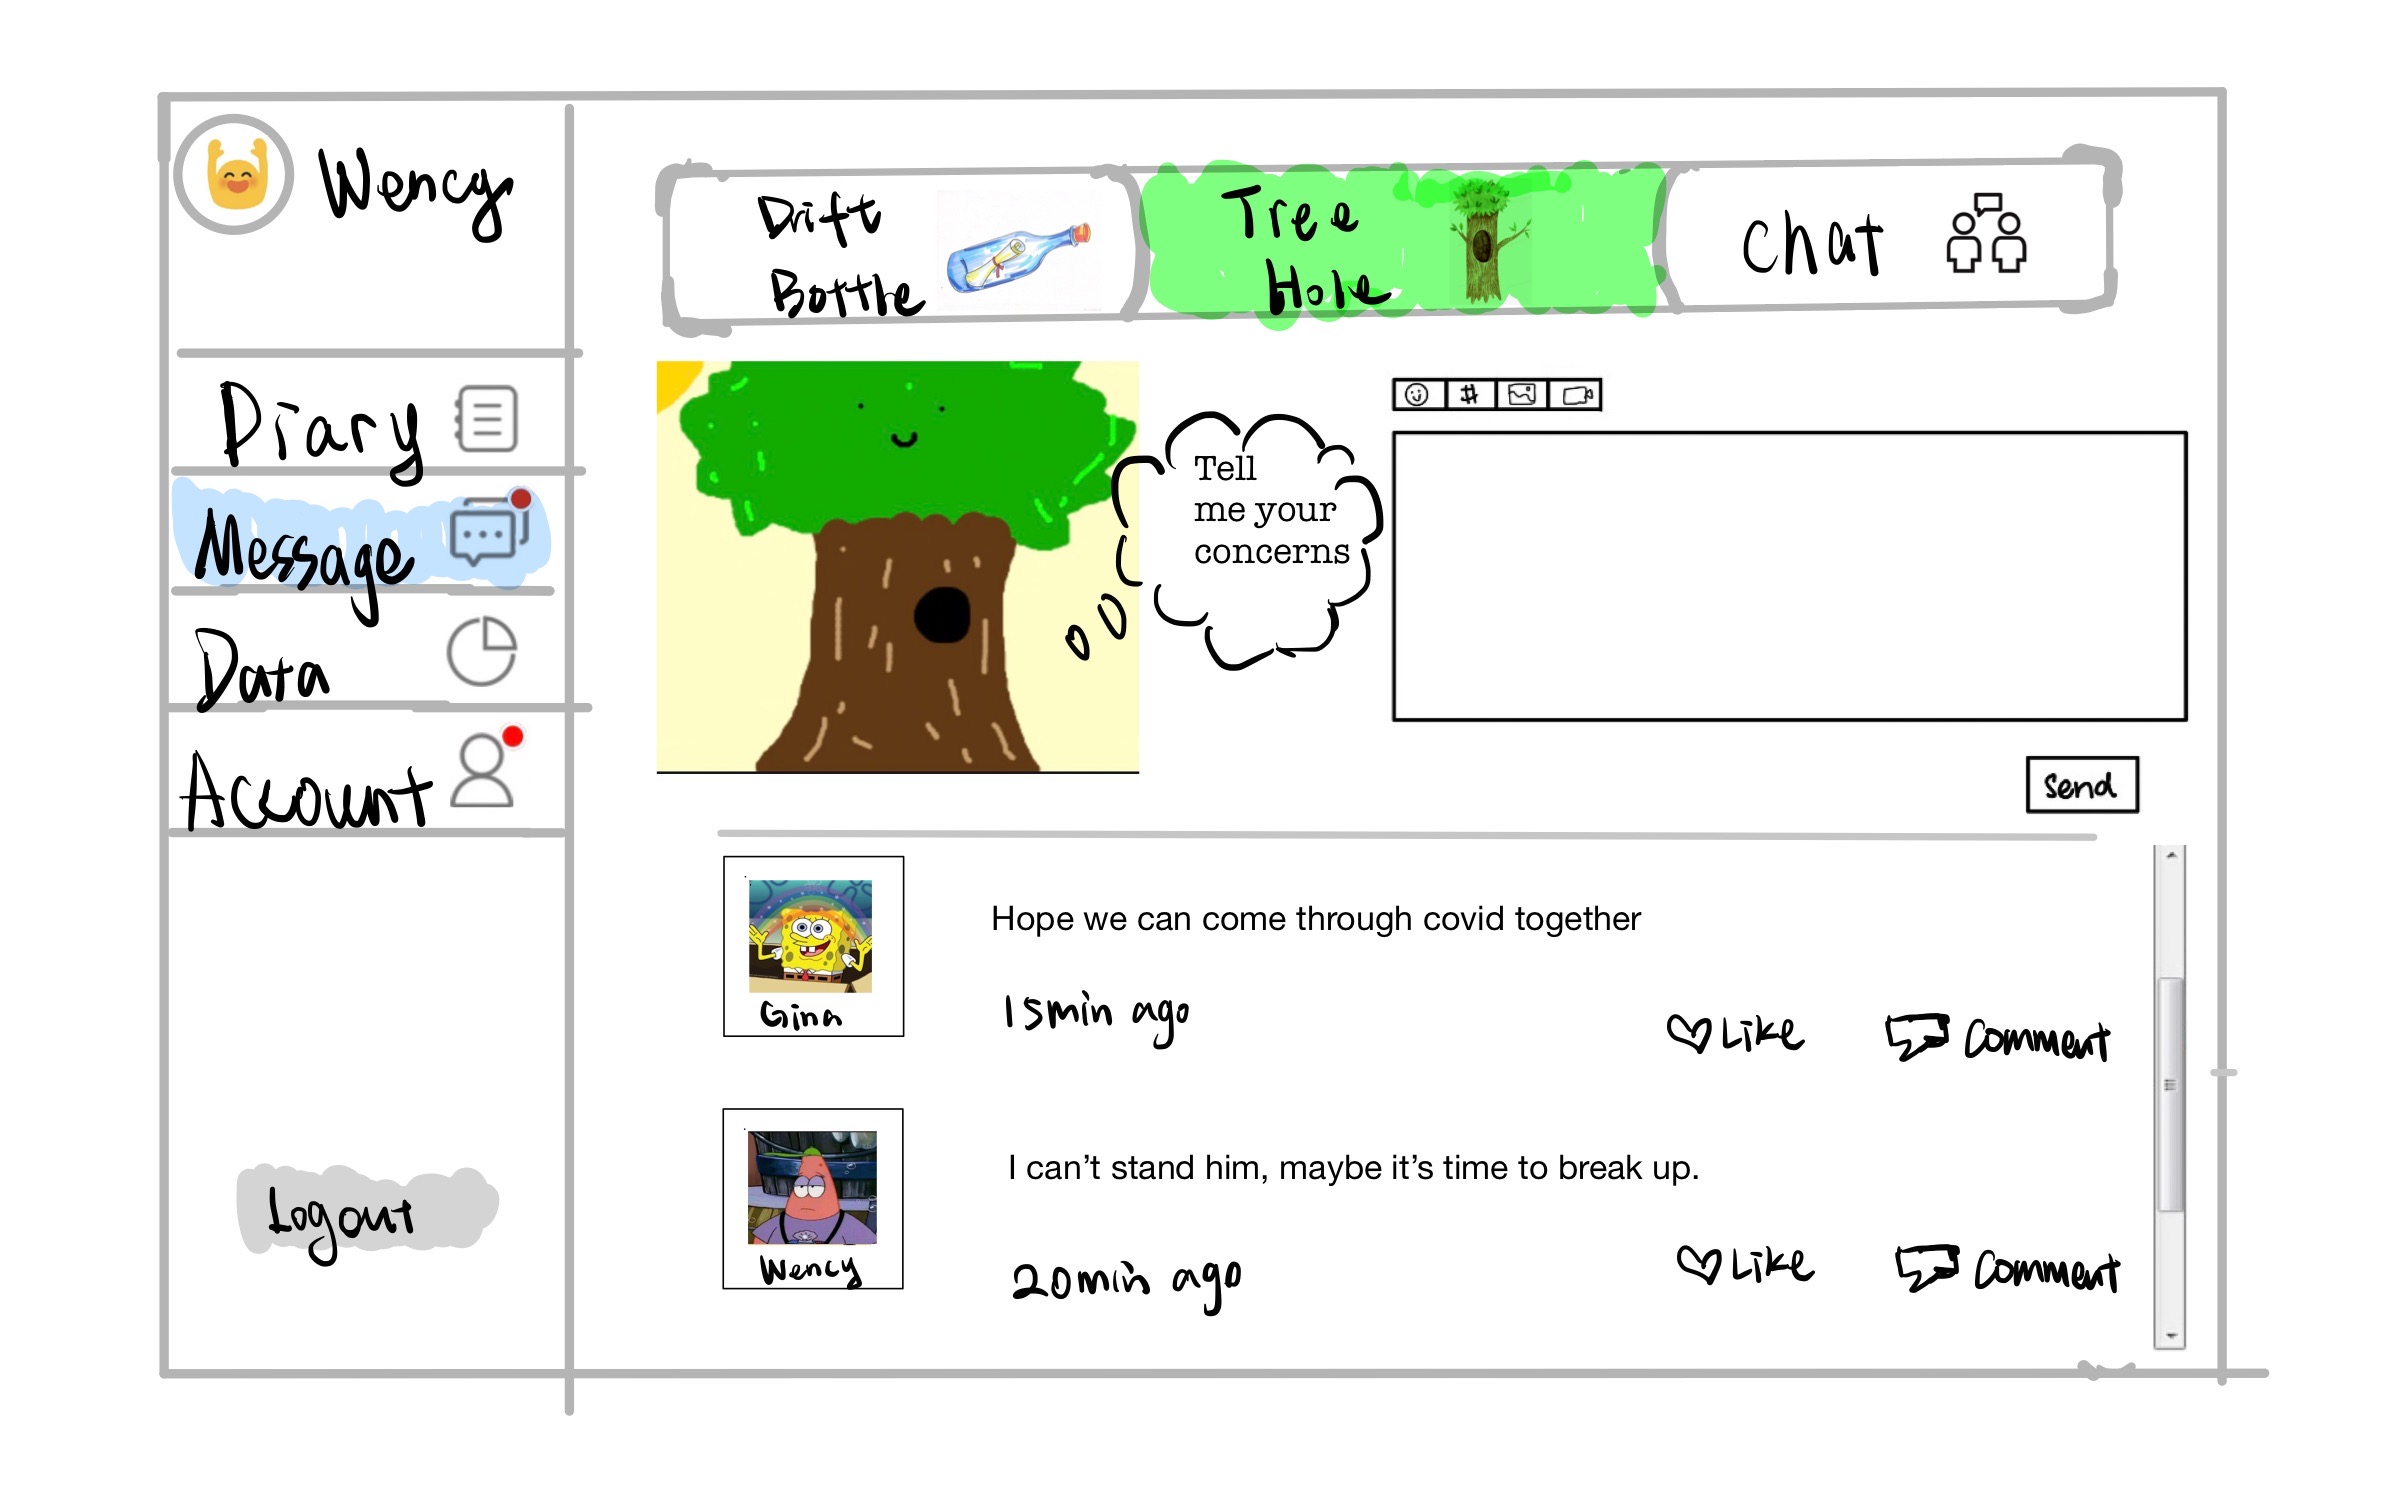 Wency
Diary
Message
Data
Account
Logout
Drift
Bottle
Tree
Hole
Chat
Tell
me your
concerns
#
Send
Hope we can come through covid together
Gina
15min ago
Like
Comment
I can't stand him, maybe it's time to break up.
Wency
20min ago
Like
Comment